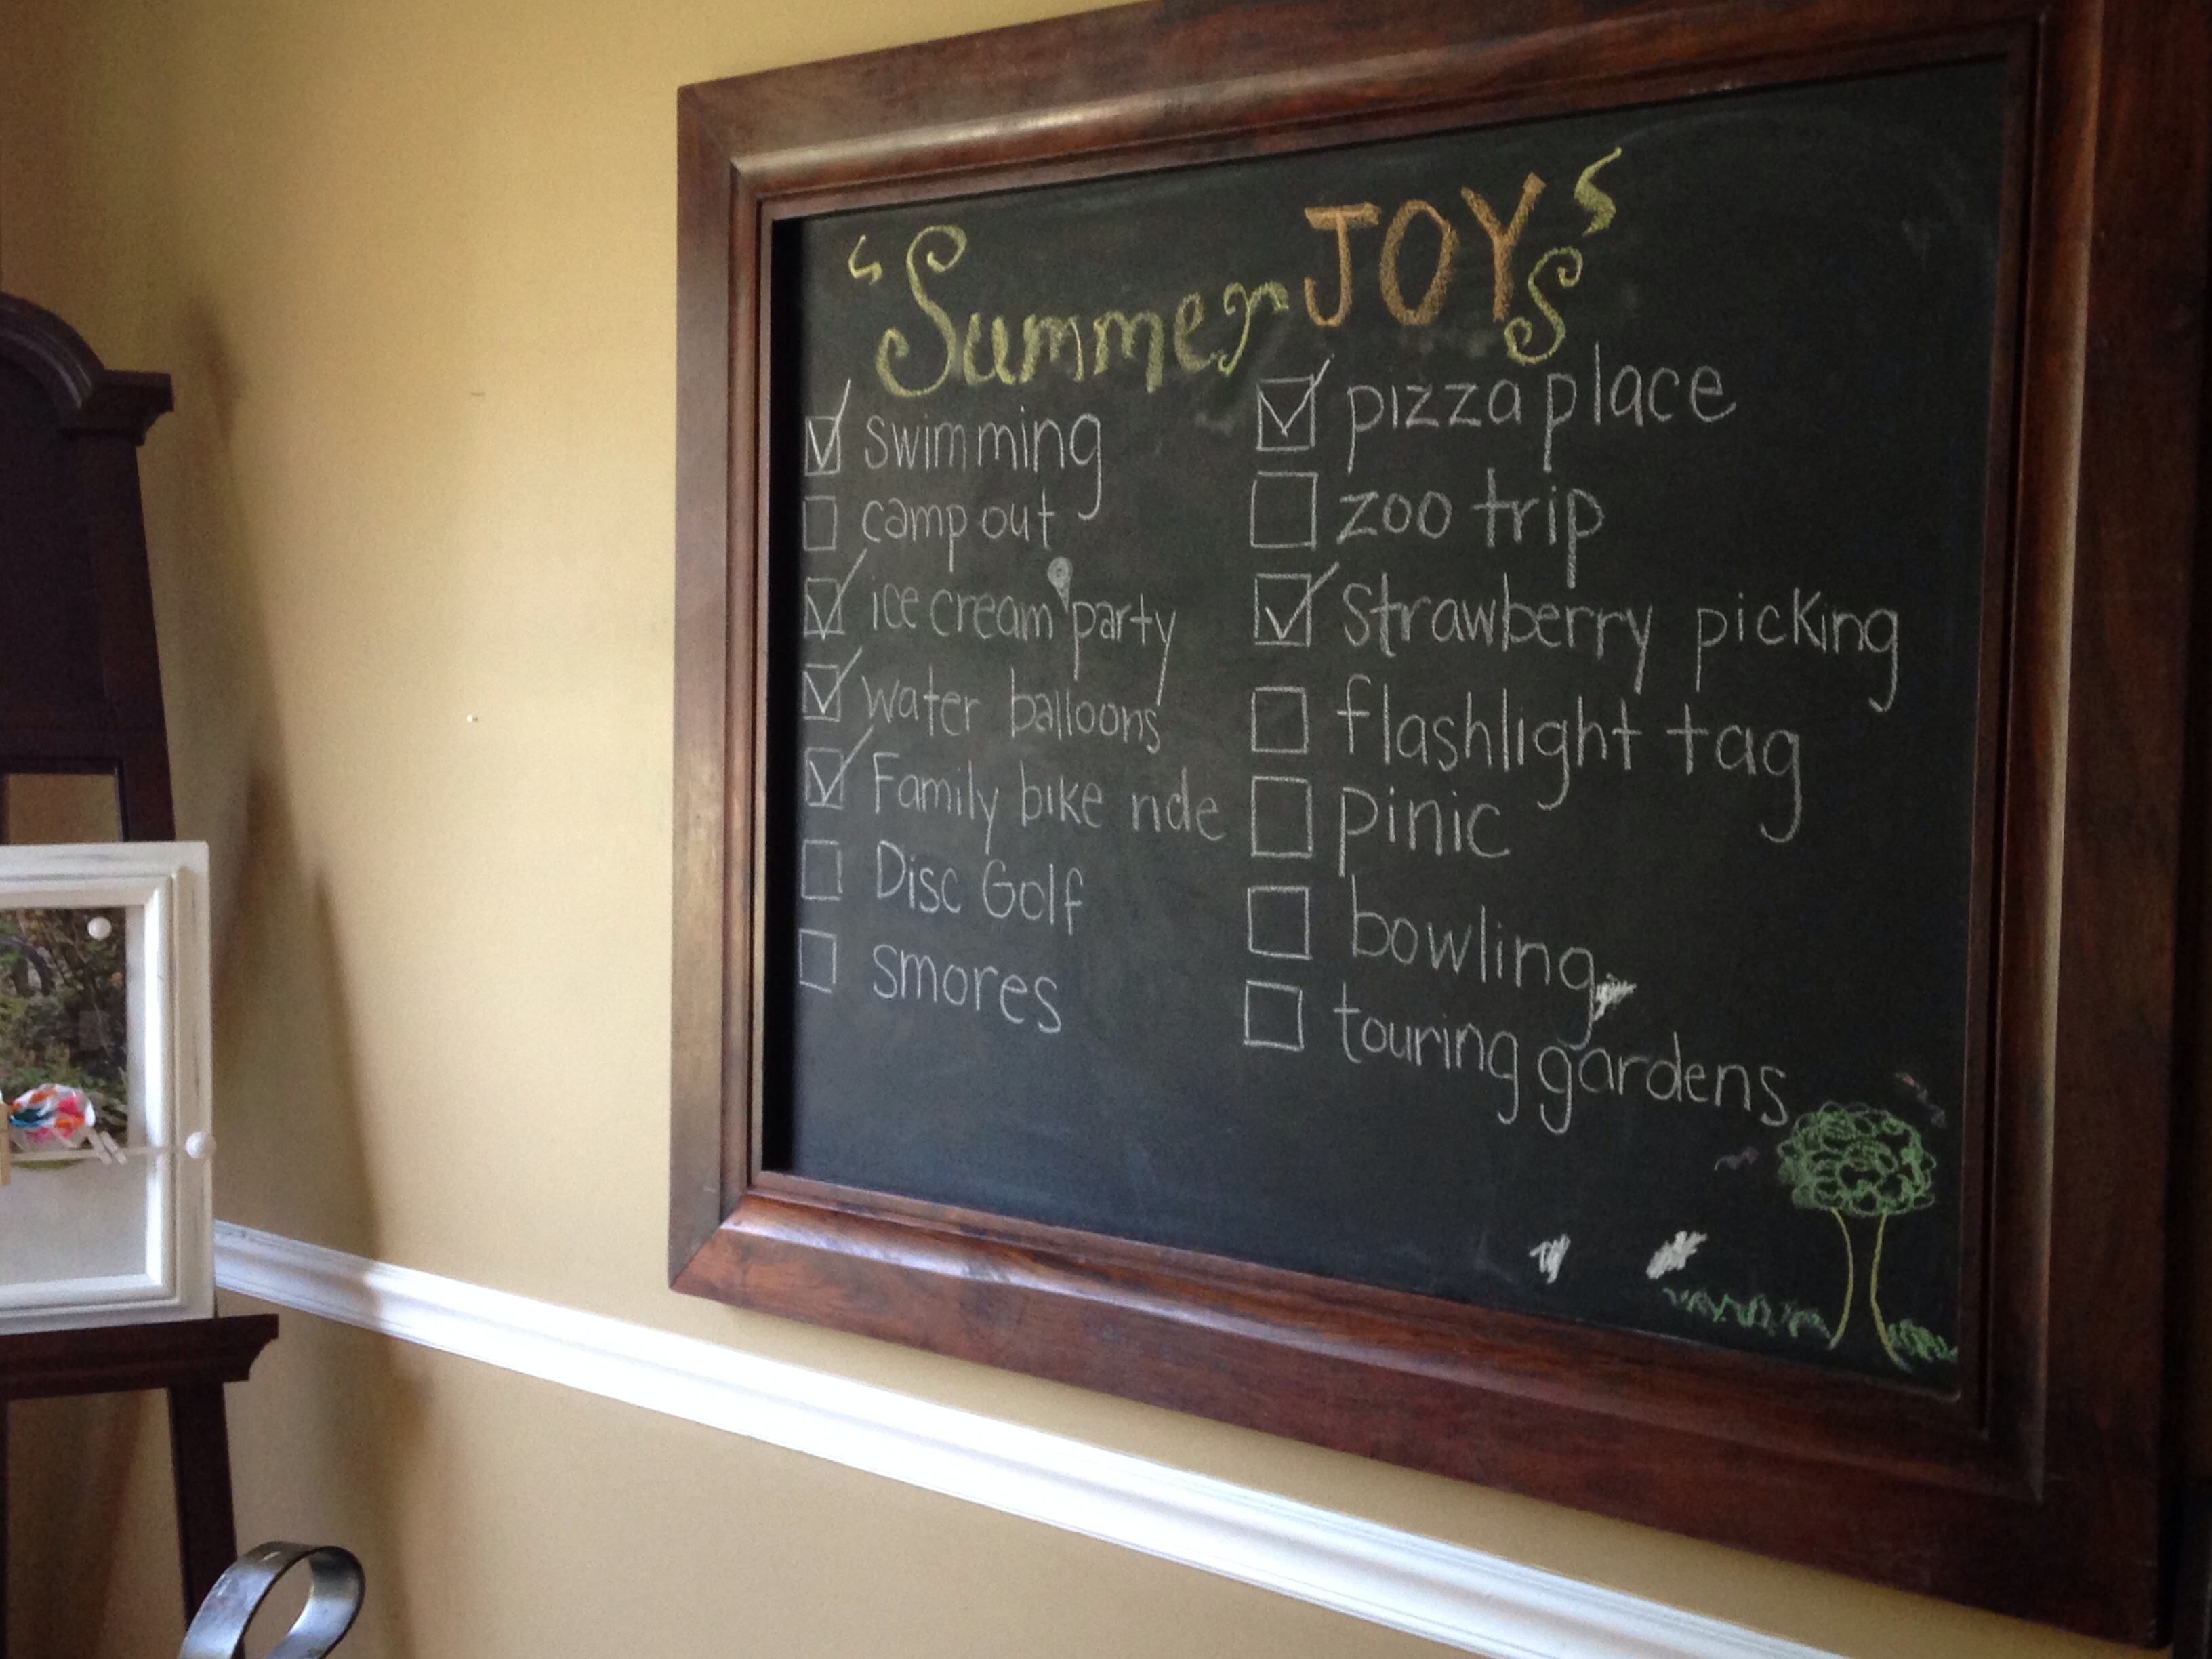 Summer JOYS
swimming
camp out
ice cream party
water balloons
Family bike ride
Disc Golf
smores
pizza place
zoo trip
Strawberry picking
flashlight tag
pinic
bowling
touring gardens